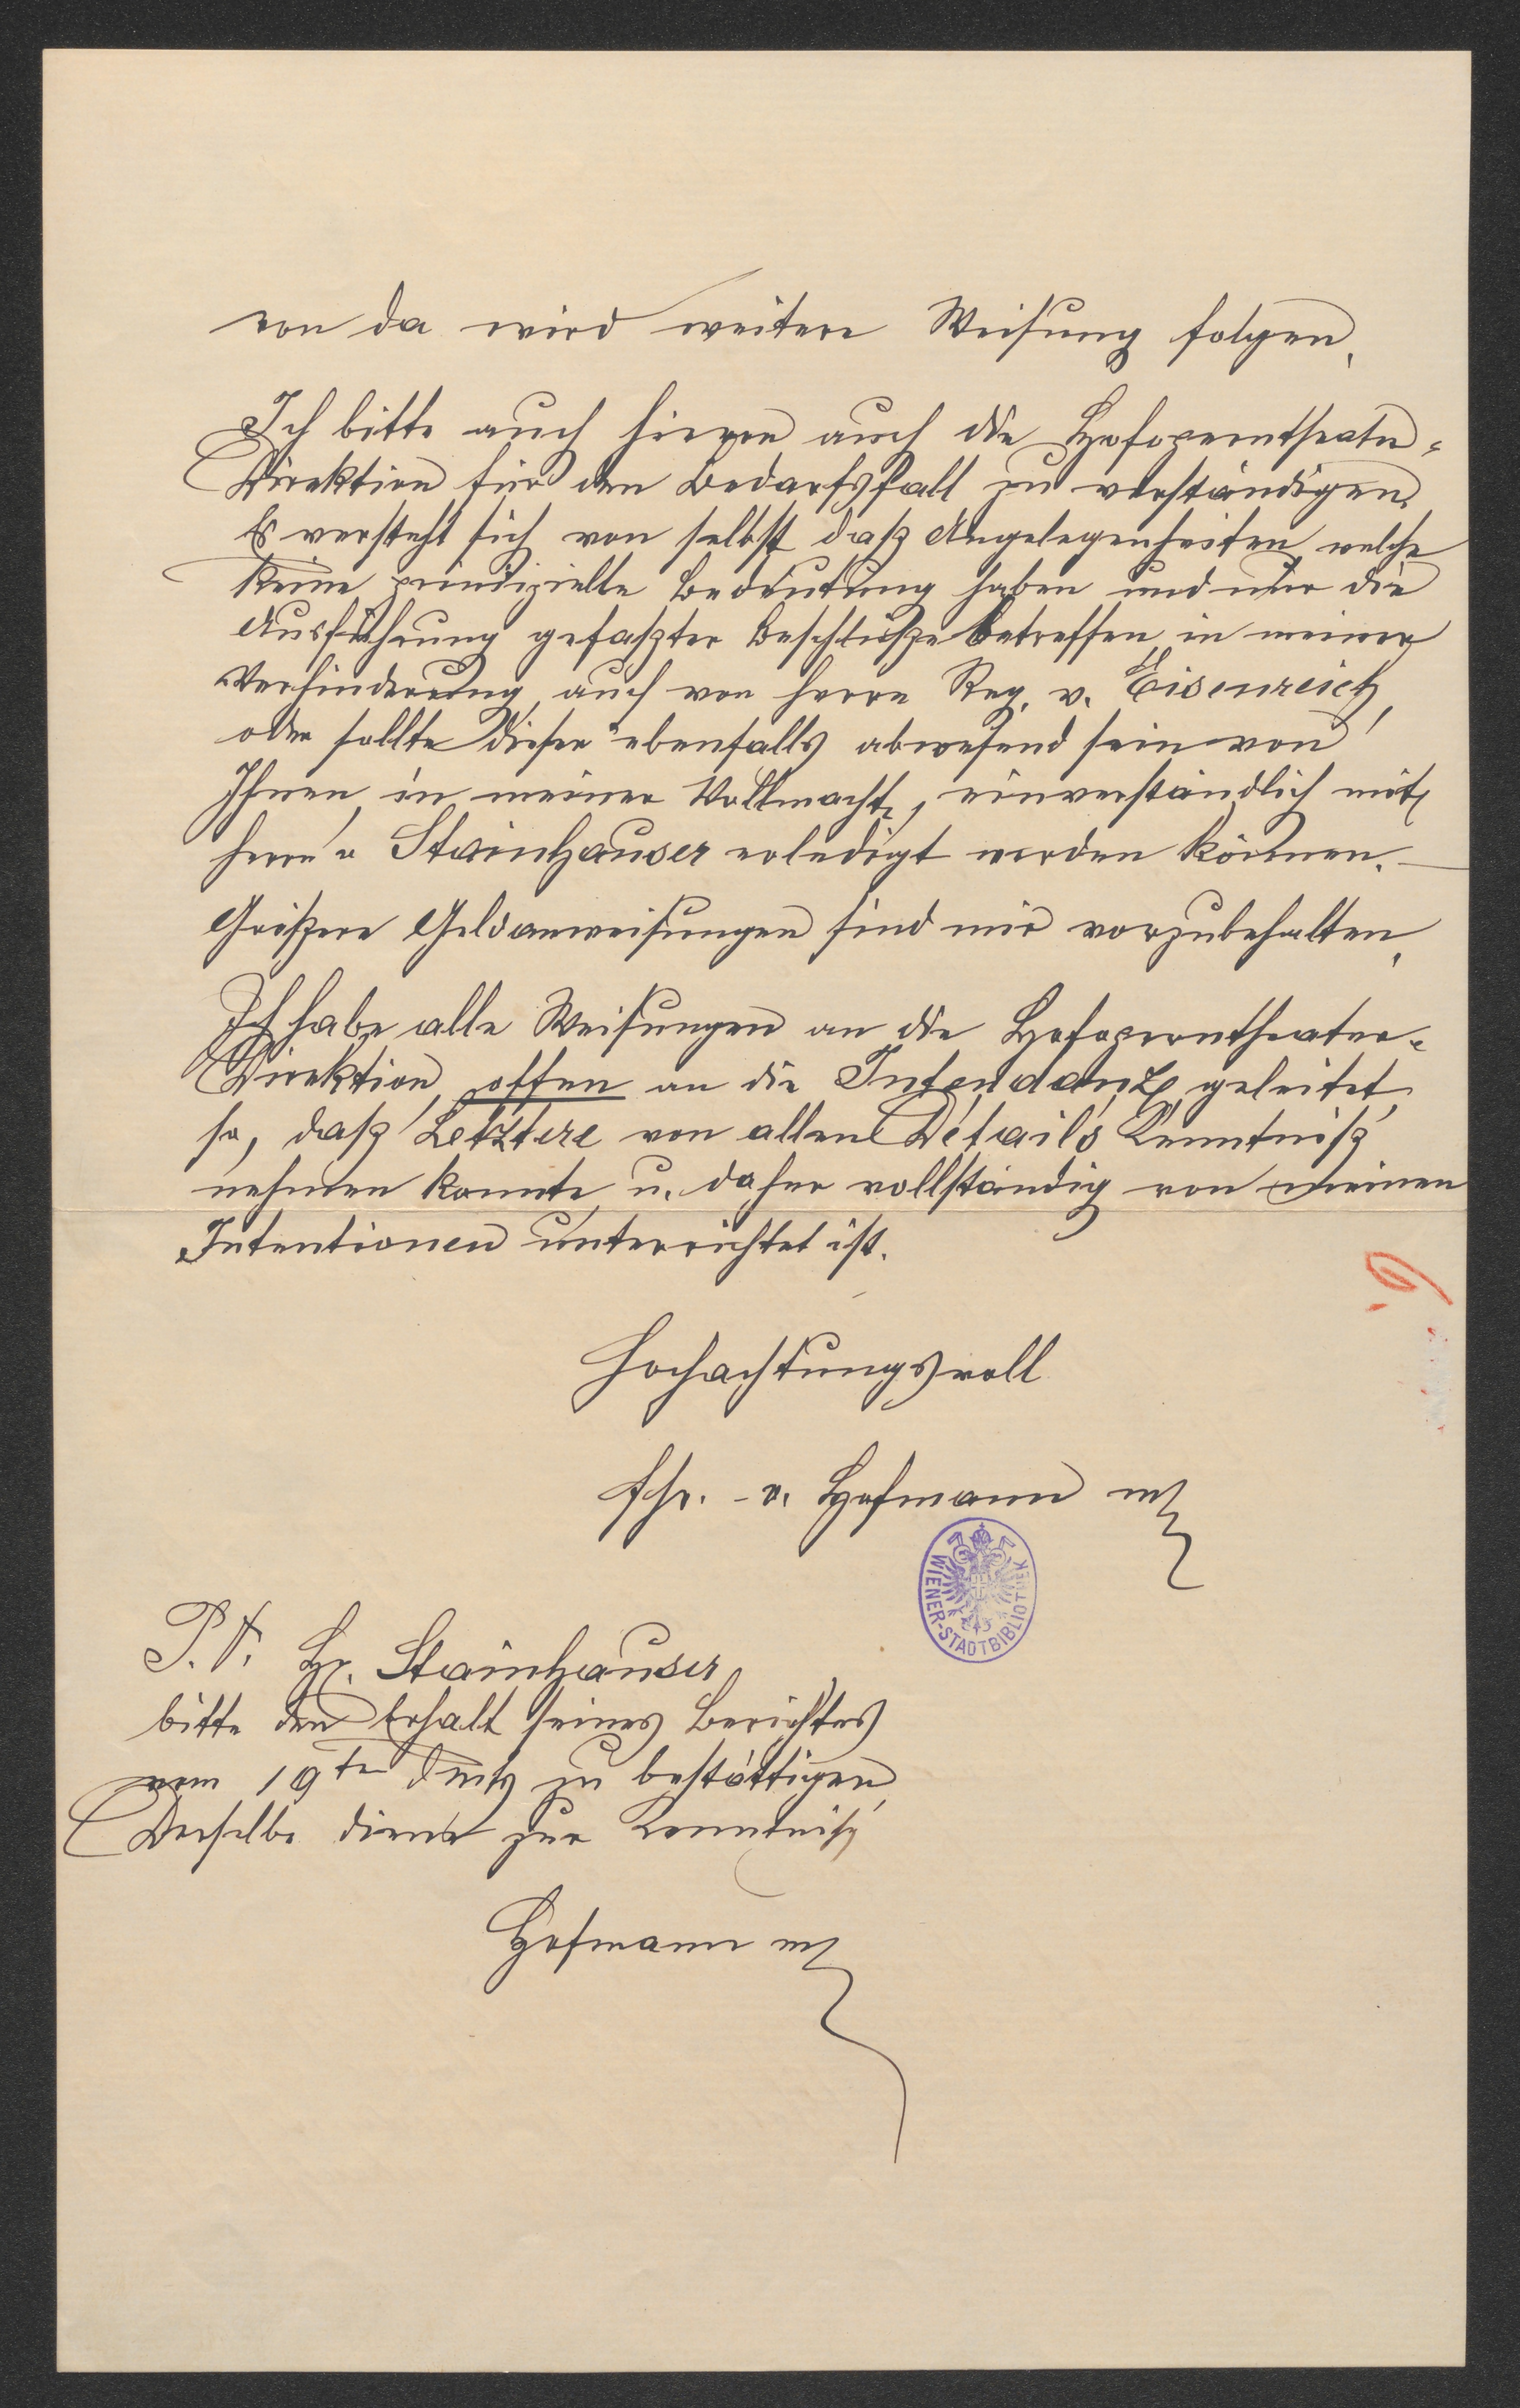 von da wird weitere Weisung folgen.
Ich bitte auch hievon auch die Hofoperntheater-
Direktion für den Bedarfsfall zu verständigen.
Es versteht sich von selbst daß Angelegenheiten, welche
keine prinzipielle Bedeutung haben und nur die
Ausführung gefaßter Beschlüße betreffen, in meiner
Verhinderung, auch von Herrn Reg. v. Eisenreich,
oder sollte dieser ebenfalls abwesend sein von
Ihnen, in meiner Vollmacht, einverständlich mit
Herrn v Stainhauser erledigt werden können. —
Größere Geldanweisungen sind mir vorzubehalten.
Ich habe alle Weisungen an die Hofoperntheater-
Direktion, offen an die Intendanz geleitet,
so, daß Letztere von allen Détails Kenntniß
nehmen konnte u. daher vollständig von meinen
Intentionen unterrichtet ist.
Hochachtungsvoll
Fhr. v. Hofmann
WIENER-STADTBIBLIOTHEK
P.T. Hr. Stainhauser
bitte den Erhalt seines Berichtes
vom 19ten dMts zu bestättigen,
Derselbe diene zur Kenntniß
Hofmann